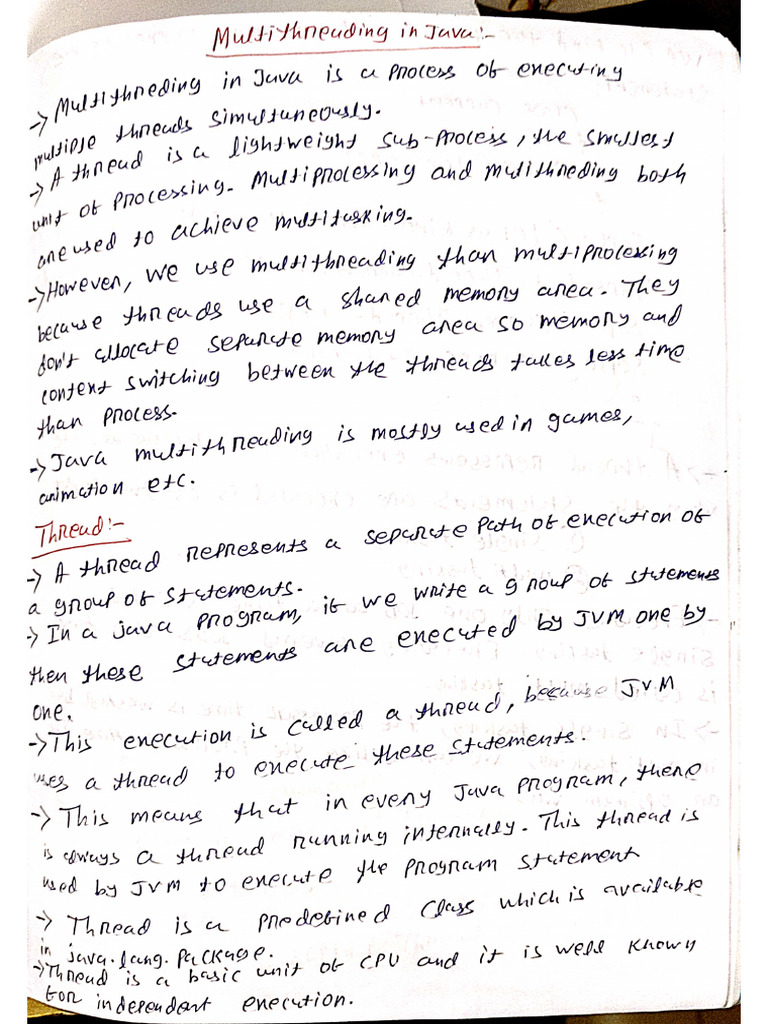 Multithreading in Java:-
-> Multithreding in Java is a process of executing
multiple threads simultaneously.
-> A thread is a lightweight sub-process, the smallest
unit of processing. Multiprocessing and multithreding both
are used to achieve multitasking.
-> However, we use multithreading than multiprocessing
because threads use a shared memory area. They
don't allocate separate memory area so memory and
context switching between the threads takes less time
than process.
-> Java multithreading is mostly used in games,
animation etc.
Thread:-
-> A thread represents a separate path of execution of
a group of statements.
-> In a java program, if we write a group of statements
then these statements are executed by JVM one by
one.
-> This execution is called a thread, because JVM
uses a thread to execute these statements.
-> This means that in every Java program, there
is always a thread running internally. This thread is
used by JVM to execute the program statement
-> Thread is a predefined class which is available
in java.lang.package.
-> Thread is a basic unit of CPU and it is well known
for independent execution.